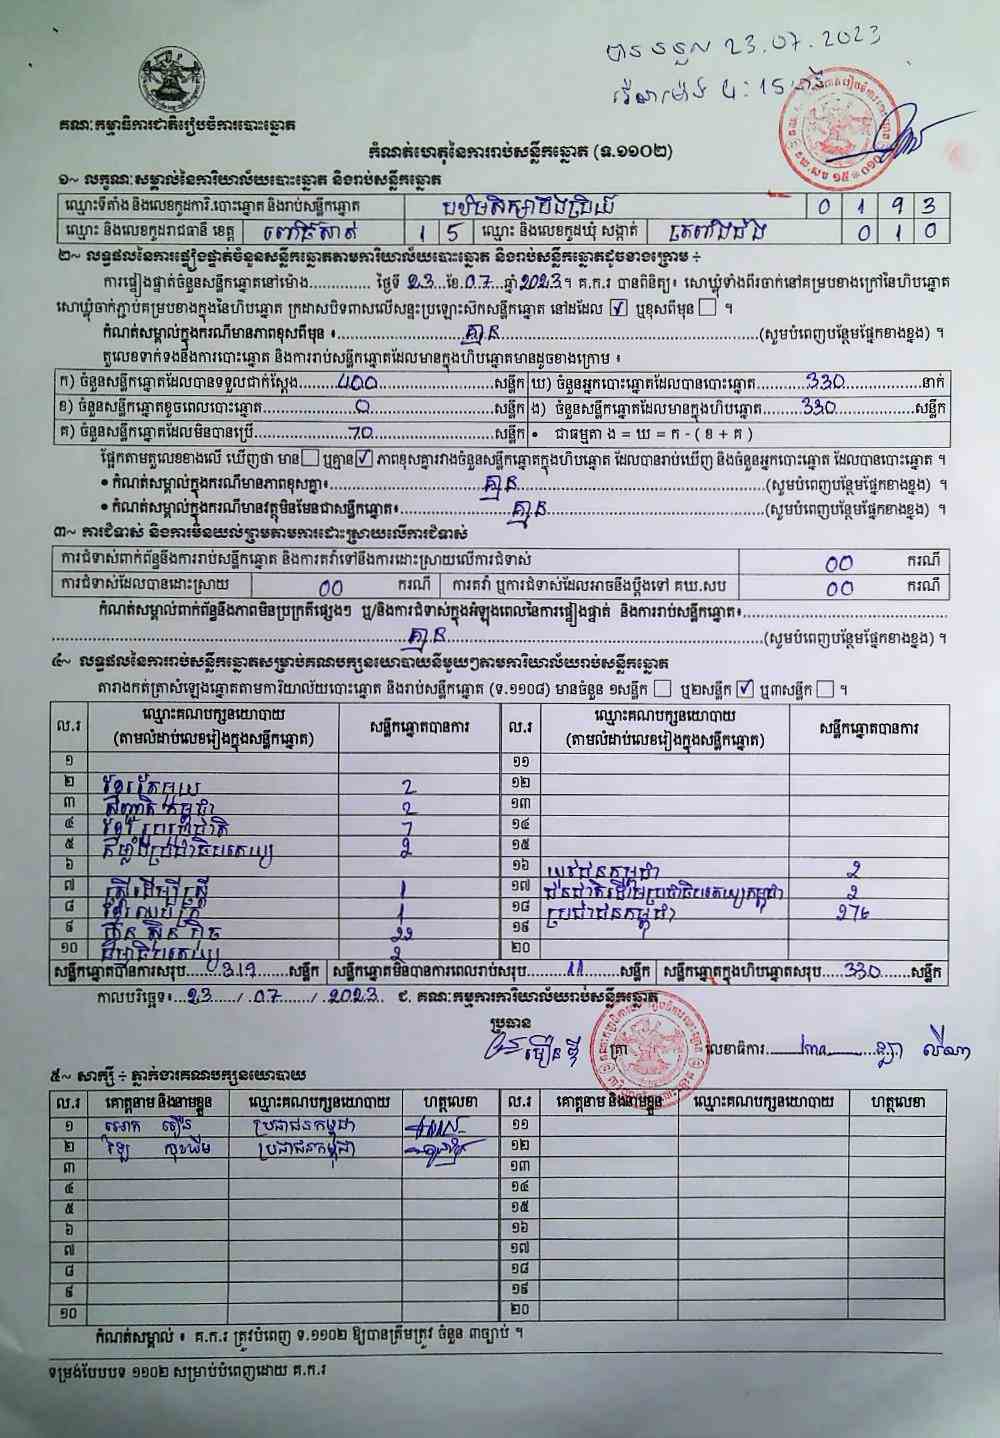 បានទទួល 23.07.2023
វេលាម៉ោង 4:15 នាទី
គណៈកម្មាធិការជាតិរៀបចំការបោះឆ្នោត
កំណត់ហេតុនៃការរាប់សន្លឹកឆ្នោត (ទ.១១០២)
១~ លក្ខណៈសម្គាល់នៃការិយាល័យបោះឆ្នោត និងរាប់សន្លឹកឆ្នោត
ឈ្មោះទីតាំង និងលេខកូដការិ.បោះឆ្នោត និងរាប់សន្លឹកឆ្នោត បឋមសិក្សាបឹងប្រិយ៍ 0 1 9 3
ឈ្មោះ និងលេខកូដរាជធានី ខេត្ត ពោធិ៍សាត់ 1 5 ឈ្មោះ និងលេខកូដឃុំ សង្កាត់ ត្រពាំងជង 0 1 0
២~ លទ្ធផលនៃការផ្ទៀងផ្ទាត់ចំនួនសន្លឹកឆ្នោតតាមការិយាល័យបោះឆ្នោត និងរាប់សន្លឹកឆ្នោតដូចខាងក្រោម ÷
ការផ្ទៀងផ្ទាត់ចំនួនសន្លឹកឆ្នោតនៅម៉ោង.............. ថ្ងៃទី 23 ខែ 07 ឆ្នាំ 2023។ គ.ក.រ បានពិនិត្យ៖ សោឃ្លុំទាំងពីរចាក់នៅគម្របខាងក្រៅនៃហិបឆ្នោត
សោឃ្លុំចាក់ភ្ជាប់គម្របខាងក្នុងនៃហិបឆ្នោត ក្រដាសបិទពាសលើសន្ទះប្រឡោះស៊កសន្លឹកឆ្នោត នៅដដែល ☑ ឬខុសពីមុន ☐ ។
កំណត់សម្គាល់ក្នុងករណីមានភាពខុសពីមុន ៖ គ្មាន (សូមបំពេញបន្ថែមផ្នែកខាងខ្នង) ។
តួលេខទាក់ទងនឹងការបោះឆ្នោត និងការរាប់សន្លឹកឆ្នោតដែលមានក្នុងហិបឆ្នោតមានដូចខាងក្រោម ៖
ក) ចំនួនសន្លឹកឆ្នោតដែលបានទទួលជាក់ស្តែង 400 សន្លឹក ឃ) ចំនួនអ្នកបោះឆ្នោតដែលបានបោះឆ្នោត 330 នាក់
ខ) ចំនួនសន្លឹកឆ្នោតខូចពេលបោះឆ្នោត 0 សន្លឹក ង) ចំនួនសន្លឹកឆ្នោតដែលមានក្នុងហិបឆ្នោត 330 សន្លឹក
គ) ចំនួនសន្លឹកឆ្នោតដែលមិនបានប្រើ 70 សន្លឹក • ជាធម្មតា ង = ឃ = ក - ( ខ + គ )
ផ្អែកតាមតួលេខខាងលើ ឃើញថា មាន ☐ ឬគ្មាន ☑ ភាពខុសគ្នារវាងចំនួនសន្លឹកឆ្នោតក្នុងហិបឆ្នោត ដែលបានរាប់ឃើញ និងចំនួនអ្នកបោះឆ្នោត ដែលបានបោះឆ្នោត ។
• កំណត់សម្គាល់ក្នុងករណីមានភាពខុសគ្នា៖ គ្មាន (សូមបំពេញបន្ថែមផ្នែកខាងខ្នង) ។
• កំណត់សម្គាល់ក្នុងករណីមានវត្ថុមិនមែនជាសន្លឹកឆ្នោត៖ គ្មាន (សូមបំពេញបន្ថែមផ្នែកខាងខ្នង) ។
៣~ ការជំទាស់ និងការមិនយល់ព្រមតាមការដោះស្រាយលើការជំទាស់
ការជំទាស់ពាក់ព័ន្ធនឹងការរាប់សន្លឹកឆ្នោត និងការតវ៉ាទៅនឹងការដោះស្រាយលើការជំទាស់ 00 ករណី
ការជំទាស់ដែលបានដោះស្រាយ 00 ករណី ការតវ៉ា ឬការជំទាស់ដែលអាចនឹងប្តឹងទៅ គឃ.សប 00 ករណី
កំណត់សម្គាល់ពាក់ព័ន្ធនឹងភាពមិនប្រក្រតីផ្សេងៗ ឬ/និងការជំទាស់ក្នុងអំឡុងពេលនៃការផ្ទៀងផ្ទាត់ និងការរាប់សន្លឹកឆ្នោត៖
គ្មាន (សូមបំពេញបន្ថែមផ្នែកខាងខ្នង) ។
៤~ លទ្ធផលនៃការរាប់សន្លឹកឆ្នោតសម្រាប់គណបក្សនយោបាយនីមួយៗតាមការិយាល័យរាប់សន្លឹកឆ្នោត
តារាងកត់ត្រាសំឡេងឆ្នោតតាមការិយាល័យបោះឆ្នោត និងរាប់សន្លឹកឆ្នោត (ទ.១១០៨) មានចំនួន ១សន្លឹក ☐ ឬ២សន្លឹក ☑ ឬ៣សន្លឹក ☐ ។
ល.រ ឈ្មោះគណបក្សនយោបាយ (តាមលំដាប់លេខរៀងក្នុងសន្លឹកឆ្នោត) សន្លឹកឆ្នោតបានការ ល.រ ឈ្មោះគណបក្សនយោបាយ (តាមលំដាប់លេខរៀងក្នុងសន្លឹកឆ្នោត) សន្លឹកឆ្នោតបានការ
១ ១១
២ ខ្មែរតែមួយ 2 ១២
៣ សញ្ជាតិកម្ពុជា 2 ១៣
៤ ខ្មែររួបរួមជាតិ 7 ១៤
៥ កម្លាំងប្រជាធិបតេយ្យ 2 ១៥
៦ ១៦ យុវជនកម្ពុជា 2
៧ ស្ត្រីដើម្បីស្ត្រី 1 ១៧ ជនជាតិដើមប្រជាធិបតេយ្យកម្ពុជា 2
៨ ខ្មែរឈប់ក្រ 1 ១៨ ប្រជាជនកម្ពុជា 276
៩ ហ៊្វុនស៊ិនប៉ិច 22 ១៩
១០ ធម្មាធិបតេយ្យ 2 ២០
សន្លឹកឆ្នោតបានការសរុប 319 សន្លឹក សន្លឹកឆ្នោតមិនបានការពេលរាប់សរុប 11 សន្លឹក សន្លឹកឆ្នោតក្នុងហិបឆ្នោតសរុប 330 សន្លឹក
កាលបរិច្ឆេទ៖ 23 / 07 / 2023 ជ. គណៈកម្មការការិយាល័យរាប់សន្លឹកឆ្នោត
ប្រធាន
ត្រា លេខាធិការ
៥~ សាក្សី ÷ ភ្នាក់ងារគណបក្សនយោបាយ
ល.រ គោត្តនាម និងនាមខ្លួន ឈ្មោះគណបក្សនយោបាយ ហត្ថលេខា ល.រ គោត្តនាម និងនាមខ្លួន ឈ្មោះគណបក្សនយោបាយ ហត្ថលេខា
១ ប្រជាជនកម្ពុជា ១១
២ ប្រជាជនកម្ពុជា ១២
៣ ១៣
៤ ១៤
៥ ១៥
៦ ១៦
៧ ១៧
៨ ១៨
៩ ១៩
១០ ២០
កំណត់សម្គាល់ ៖ គ.ក.រ ត្រូវបំពេញ ទ.១១០២ ឱ្យបានត្រឹមត្រូវ ចំនួន ៣ច្បាប់ ។
ទម្រង់បែបបទ ១១០២ សម្រាប់បំពេញដោយ គ.ក.រ